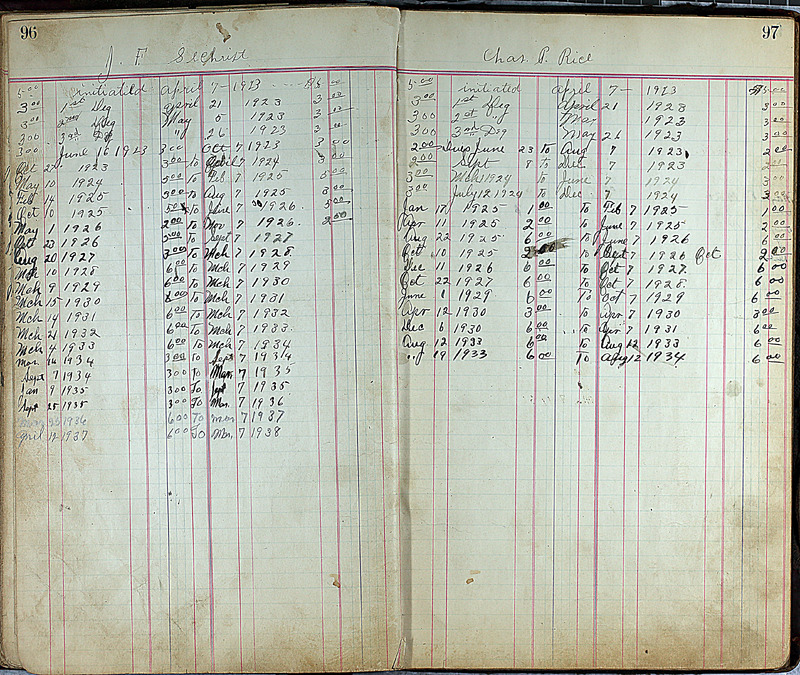 96
J. F. Selchrist
5.00 initiated april 7 - 1923 $5.00
3.00 1st Deg april 21 1923 3.00
3.00 2nd Deg May 5 1923 3.00
3.00 3rd Deg " 26 1923 3.00
3.00 June 16 1923 3.00 Oct 7 1923 3.00
Oct 27 1923 3.00 to april 7 1924 3.00
May 10 1924 3.00 to Feb 7 1925 5.00
Feb 14 1925 3.00 to Aug 7 1925 3.00
Oct 10 1925 to June 7 1926 5.00
May 1 1926 2.00 to Nov 7 1926 2.00
Oct 23 1926 to Sept 7 1927
Aug 20 1927 3.00 to Mch 7 1928
Mch 10 1928 6.00 to Mch 7 1929
Mch 9 1929 6.00 to Mch 7 1930
Mch 15 1930 6.00 To Mch 7 1931
Mch 14 1931 6.00 To Mch 7 1932
Mch 21 1932 6.00 To Mch 7 1933
Mch 4 1933 6.00 to Mch 7 1934
Mar 1934 3.00 To Sept 7 1934
Sept 7 1934 3.00 To Mar 7 1935
Jan 9 1935 3.00 To Sept 7 1935
Sept 25 1935 3.00 To Mar 7 1936
1936 6.00 To Mar 7 1937
april 12 1937 6.00 To Mar 7 1938
97
Chas. P. Rice
5.00 initiated april 7 - 1923 $5.00
3.00 1st Deg april 21 1923 3.00
3.00 2nd Deg May 1923 3.00
3.00 3rd Deg May 26 1923 3.00
2.00 Dues June 23 to Aug 7 1923 2.00
2.00 Sept 8 to Dec 7 1923 2.00
3.00 Mch 1924 to June 7 1924 3.00
3.00 July 12 1924 to Dec 7 1924 3.00
Jan 17 1925 1.00 To Feb 7 1925 1.00
Apr 11 1925 2.00 to June 7 1925 2.00
Aug 22 1925 6.00 to June 7 1926 6.00
Oct 10 1925 2.00 to 7 1926 Oct 2.00
Dec 11 1926 6.00 To Oct 7 1927 6.00
Oct 22 1927 6.00 To Oct 7 1928 6.00
June 1 1929 6.00 To Oct 7 1929 6.00
Apr 12 1930 3.00 To Apr 7 1930 3.00
Dec 6 1930 6.00 To Apr 7 1931 6.00
Aug 12 1933 6.00 To Aug 12 1933 6.00
" 19 1933 6.00 To Aug 12 1934 6.00